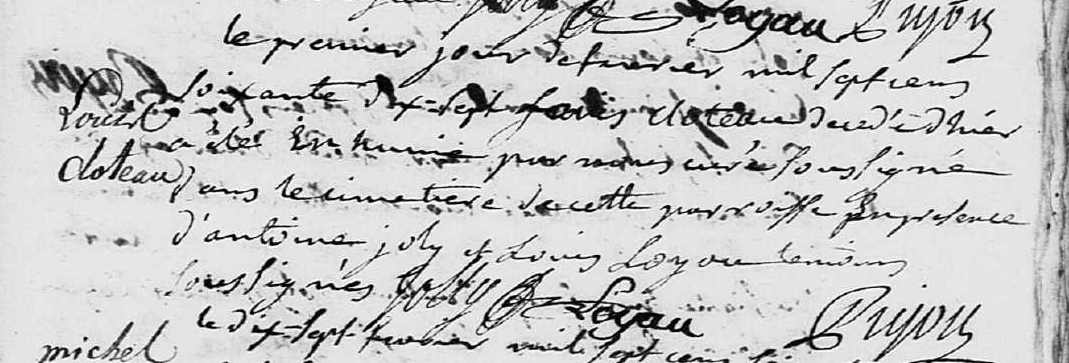 Loyau Pujon
le premier jour de fevrier mil sept cens
soixante dix-sept Louis cloteau decedé d'hier
Louis
a été inhumé par nous curé soussigné
cloteau
dans le cimetiere de cette parroisse En presence
d'antoine joly et Louis Loyau temoins
soussignés Jolly Loyau Pujon
le dix-sept fevrier mil sept cens
michel